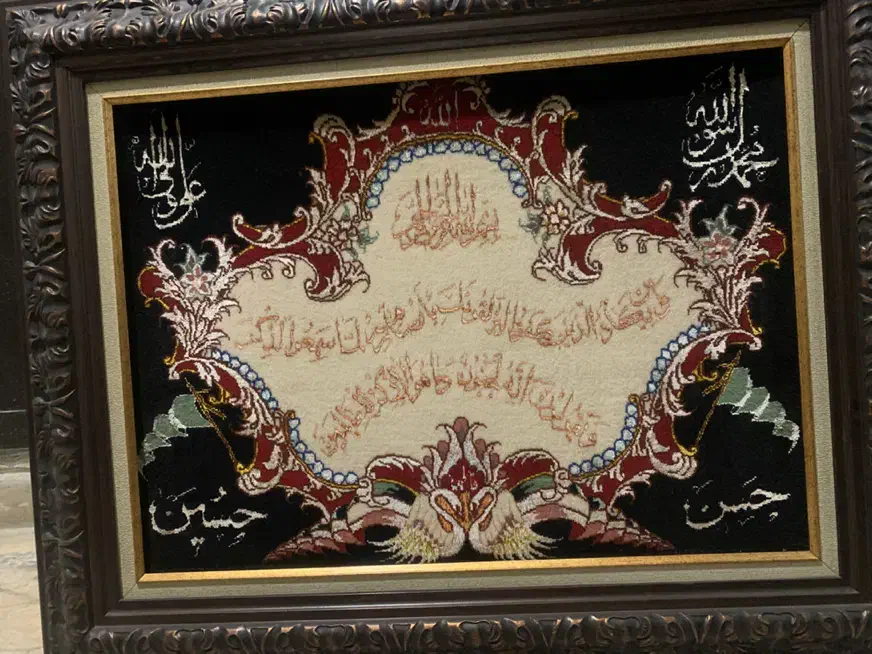 الله
محمد رسول الله
علی ولی الله
بسم الله الرحمن الرحیم
وان یکاد الذین کفروا لیزلقونک بابصارهم لما سمعوا الذکر
و یقولون انه لمجنون و ما هو الا ذکر للعالمین
حسن
حسین